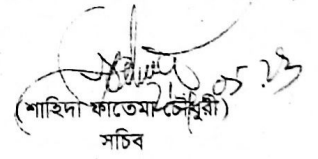 05.23
(শাহিদা ফাতেমা চৌধুরী)
সচিব